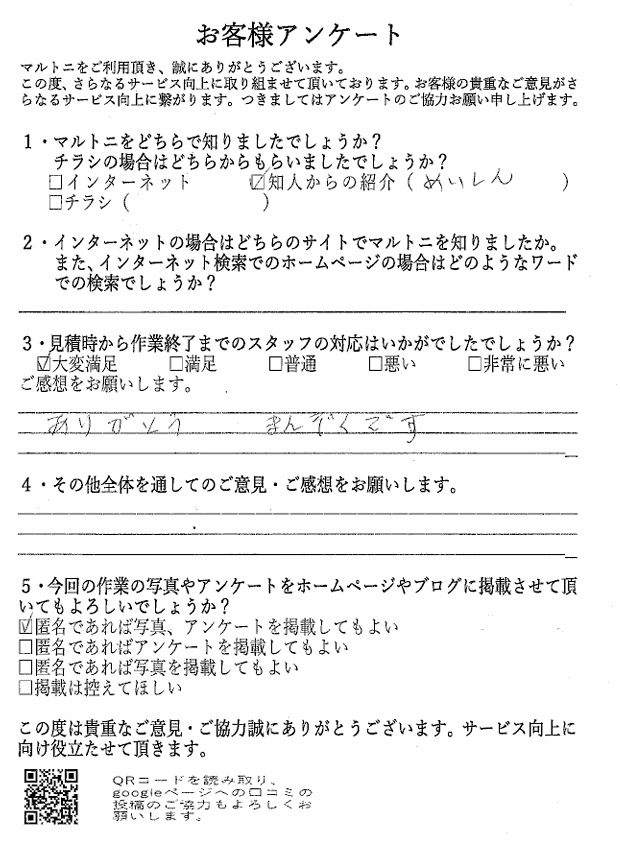 お客様アンケート
マルトニをご利用頂き、誠にありがとうございます。
この度、さらなるサービス向上に取り組ませて頂いております。お客様の貴重なご意見がさ
らなるサービス向上に繋がります。つきましてはアンケートのご協力お願い申し上げます。
1・マルトニをどちらで知りましたでしょうか？
チラシの場合はどちらからもらいましたでしょうか？
□インターネット ☑知人からの紹介（めいしん）
□チラシ（ ）
2・インターネットの場合はどちらのサイトでマルトニを知りましたか。
また、インターネット検索でのホームページの場合はどのようなワード
での検索でしょうか？
3・見積時から作業終了までのスタッフの対応はいかがでしたでしょうか？
☑大変満足 □満足 □普通 □悪い □非常に悪い
ご感想をお願いします。
ありがとう まんぞくです
4・その他全体を通してのご意見・ご感想をお願いします。
5・今回の作業の写真やアンケートをホームページやブログに掲載させて頂
いてもよろしいでしょうか？
☑匿名であれば写真、アンケートを掲載してもよい
□匿名であればアンケートを掲載してもよい
□匿名であれば写真を掲載してもよい
□掲載は控えてほしい
この度は貴重なご意見・ご協力誠にありがとうございます。サービス向上に
向け役立たせて頂きます。
QRコードを読み取り、
googleページへの口コミの
投稿のご協力もよろしくお
願いします。